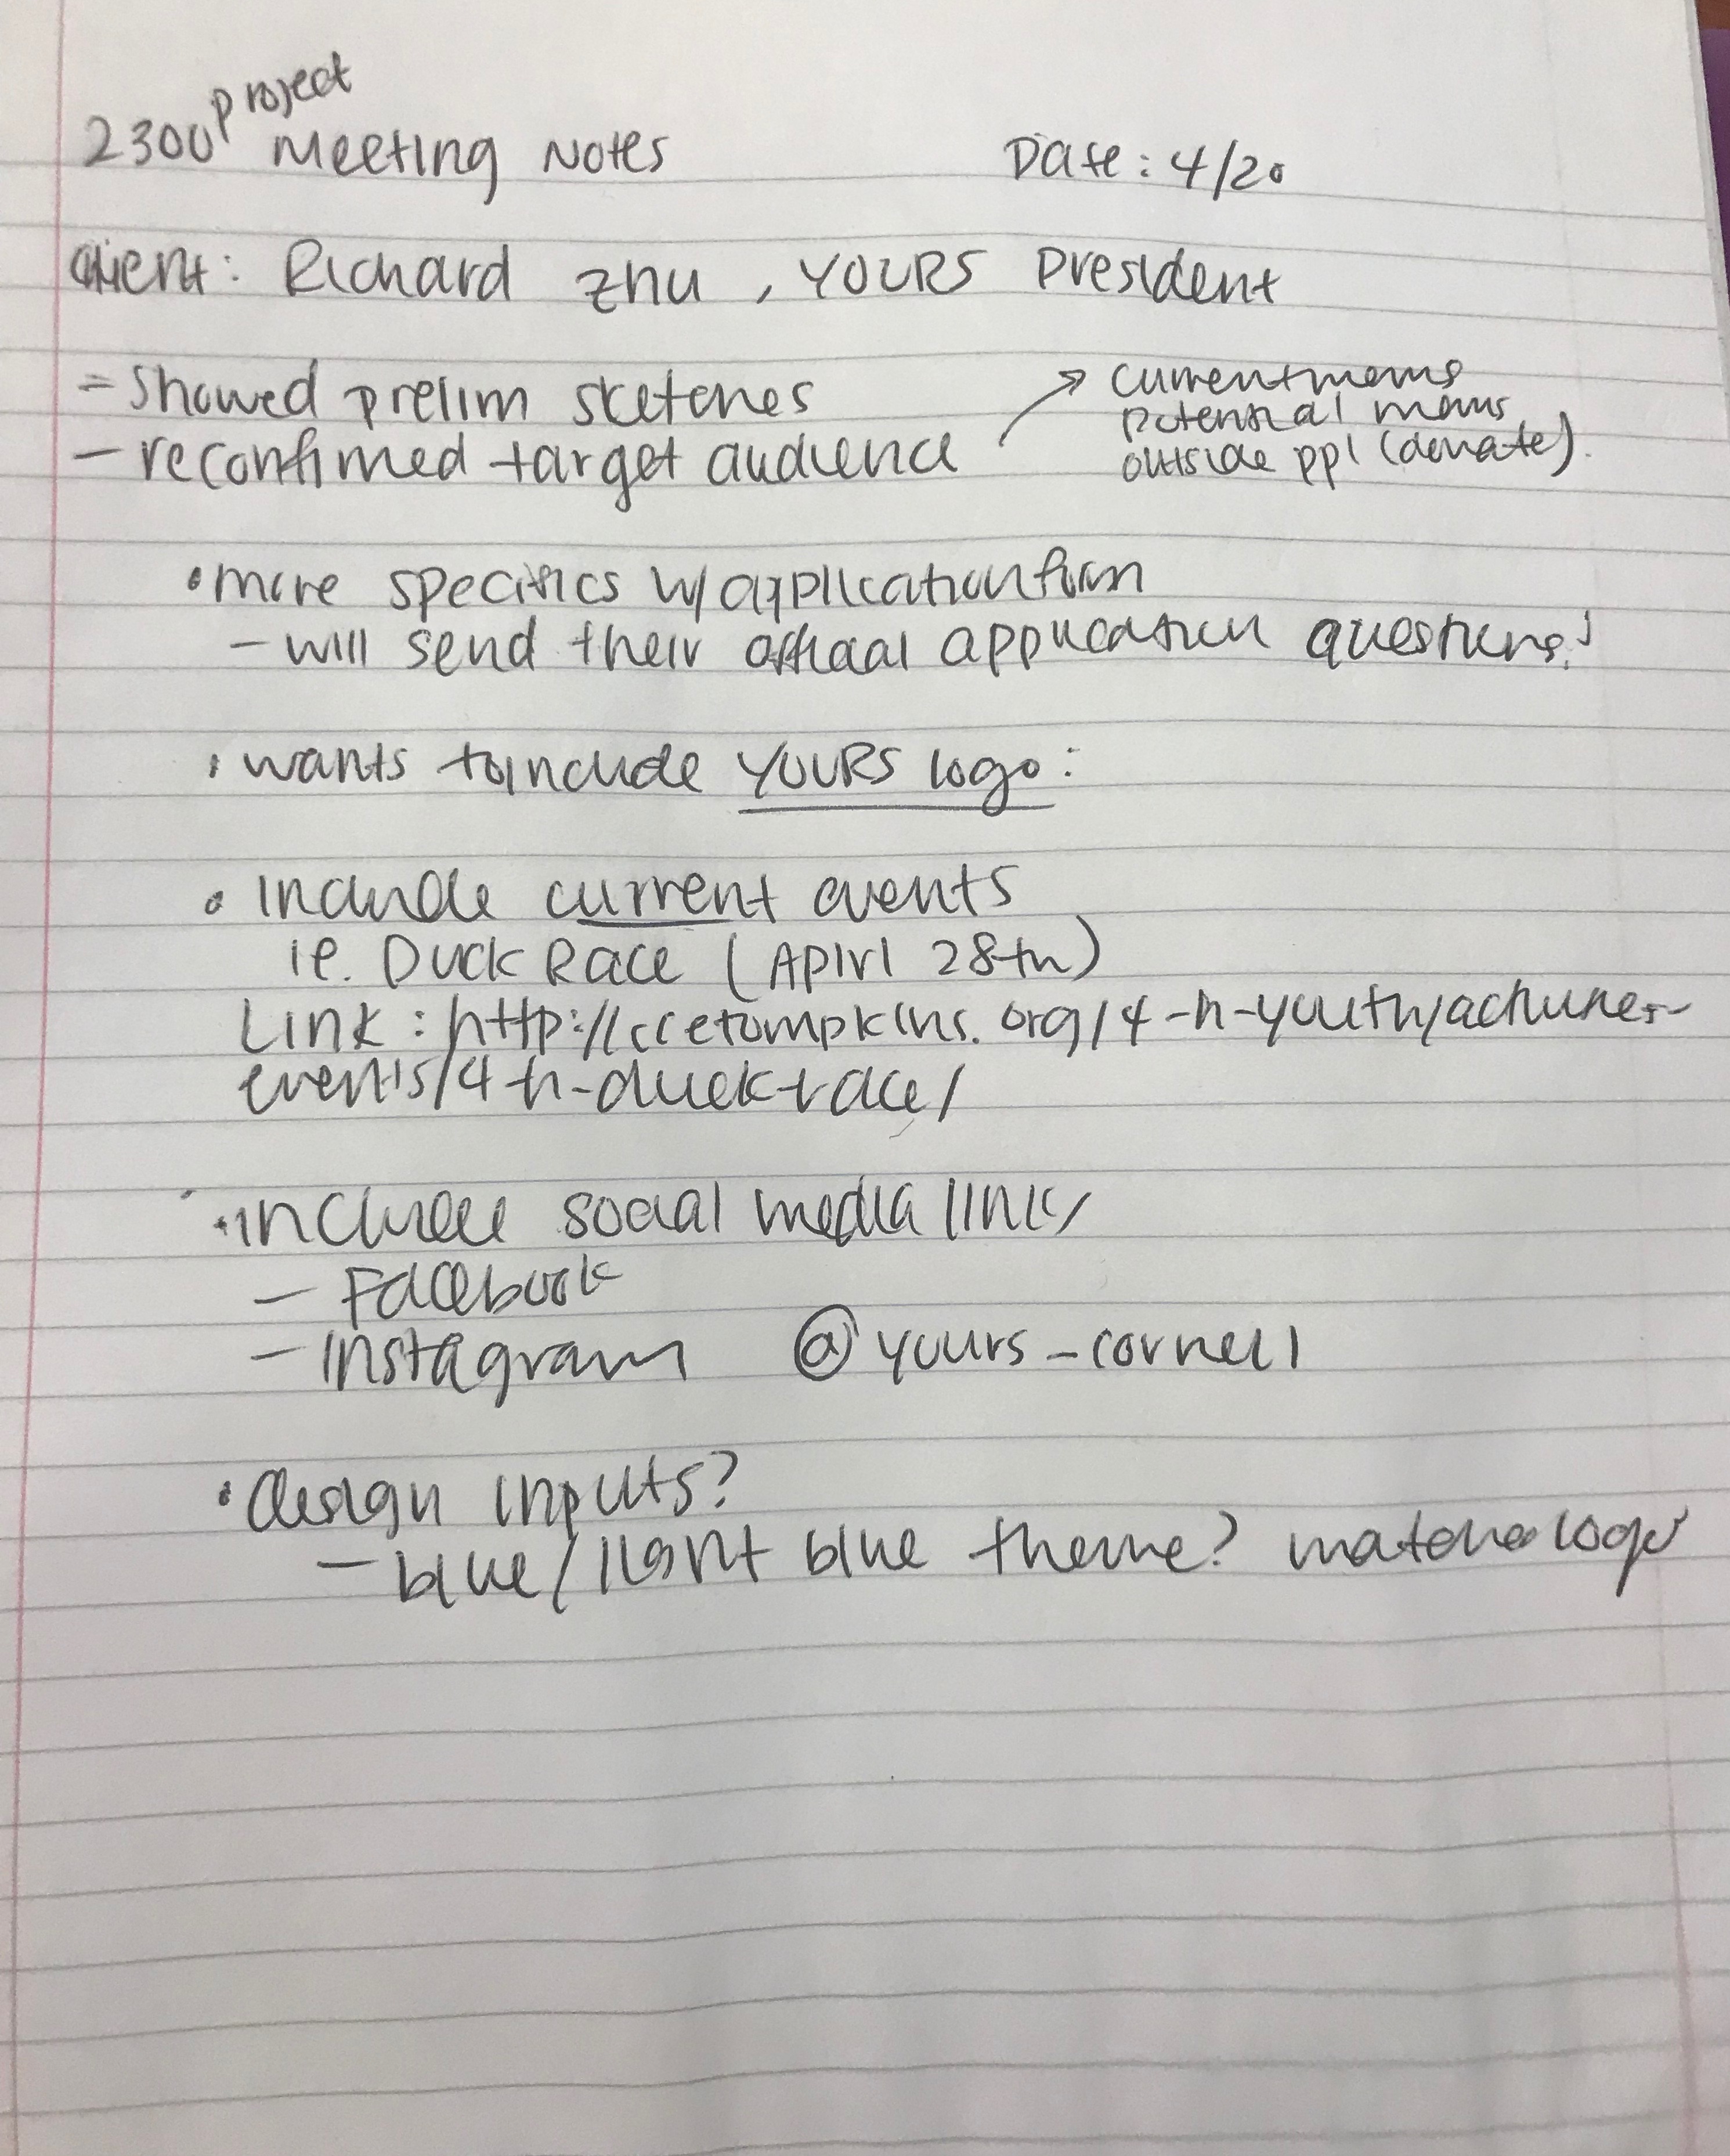 2300 project Meeting Notes Date: 4/20
Client: Richard Zhu, YOURS President
- Showed prelim sketches
- reconfirmed target audience → current mems
potential mems
outside ppl (donate).
• more specifics w/ application form
- will send their official application questions!
• wants to include YOURS logo:
• Include current events
ie. Duck Race (Apirl 28th)
Link: http://ccetompkins.org/4-h-youth/activities-
events/4-h-duck-race/
• include social media links
- Facebook
- Instagram @yours_cornell
• design inputs?
- blue/light blue theme? matches logo